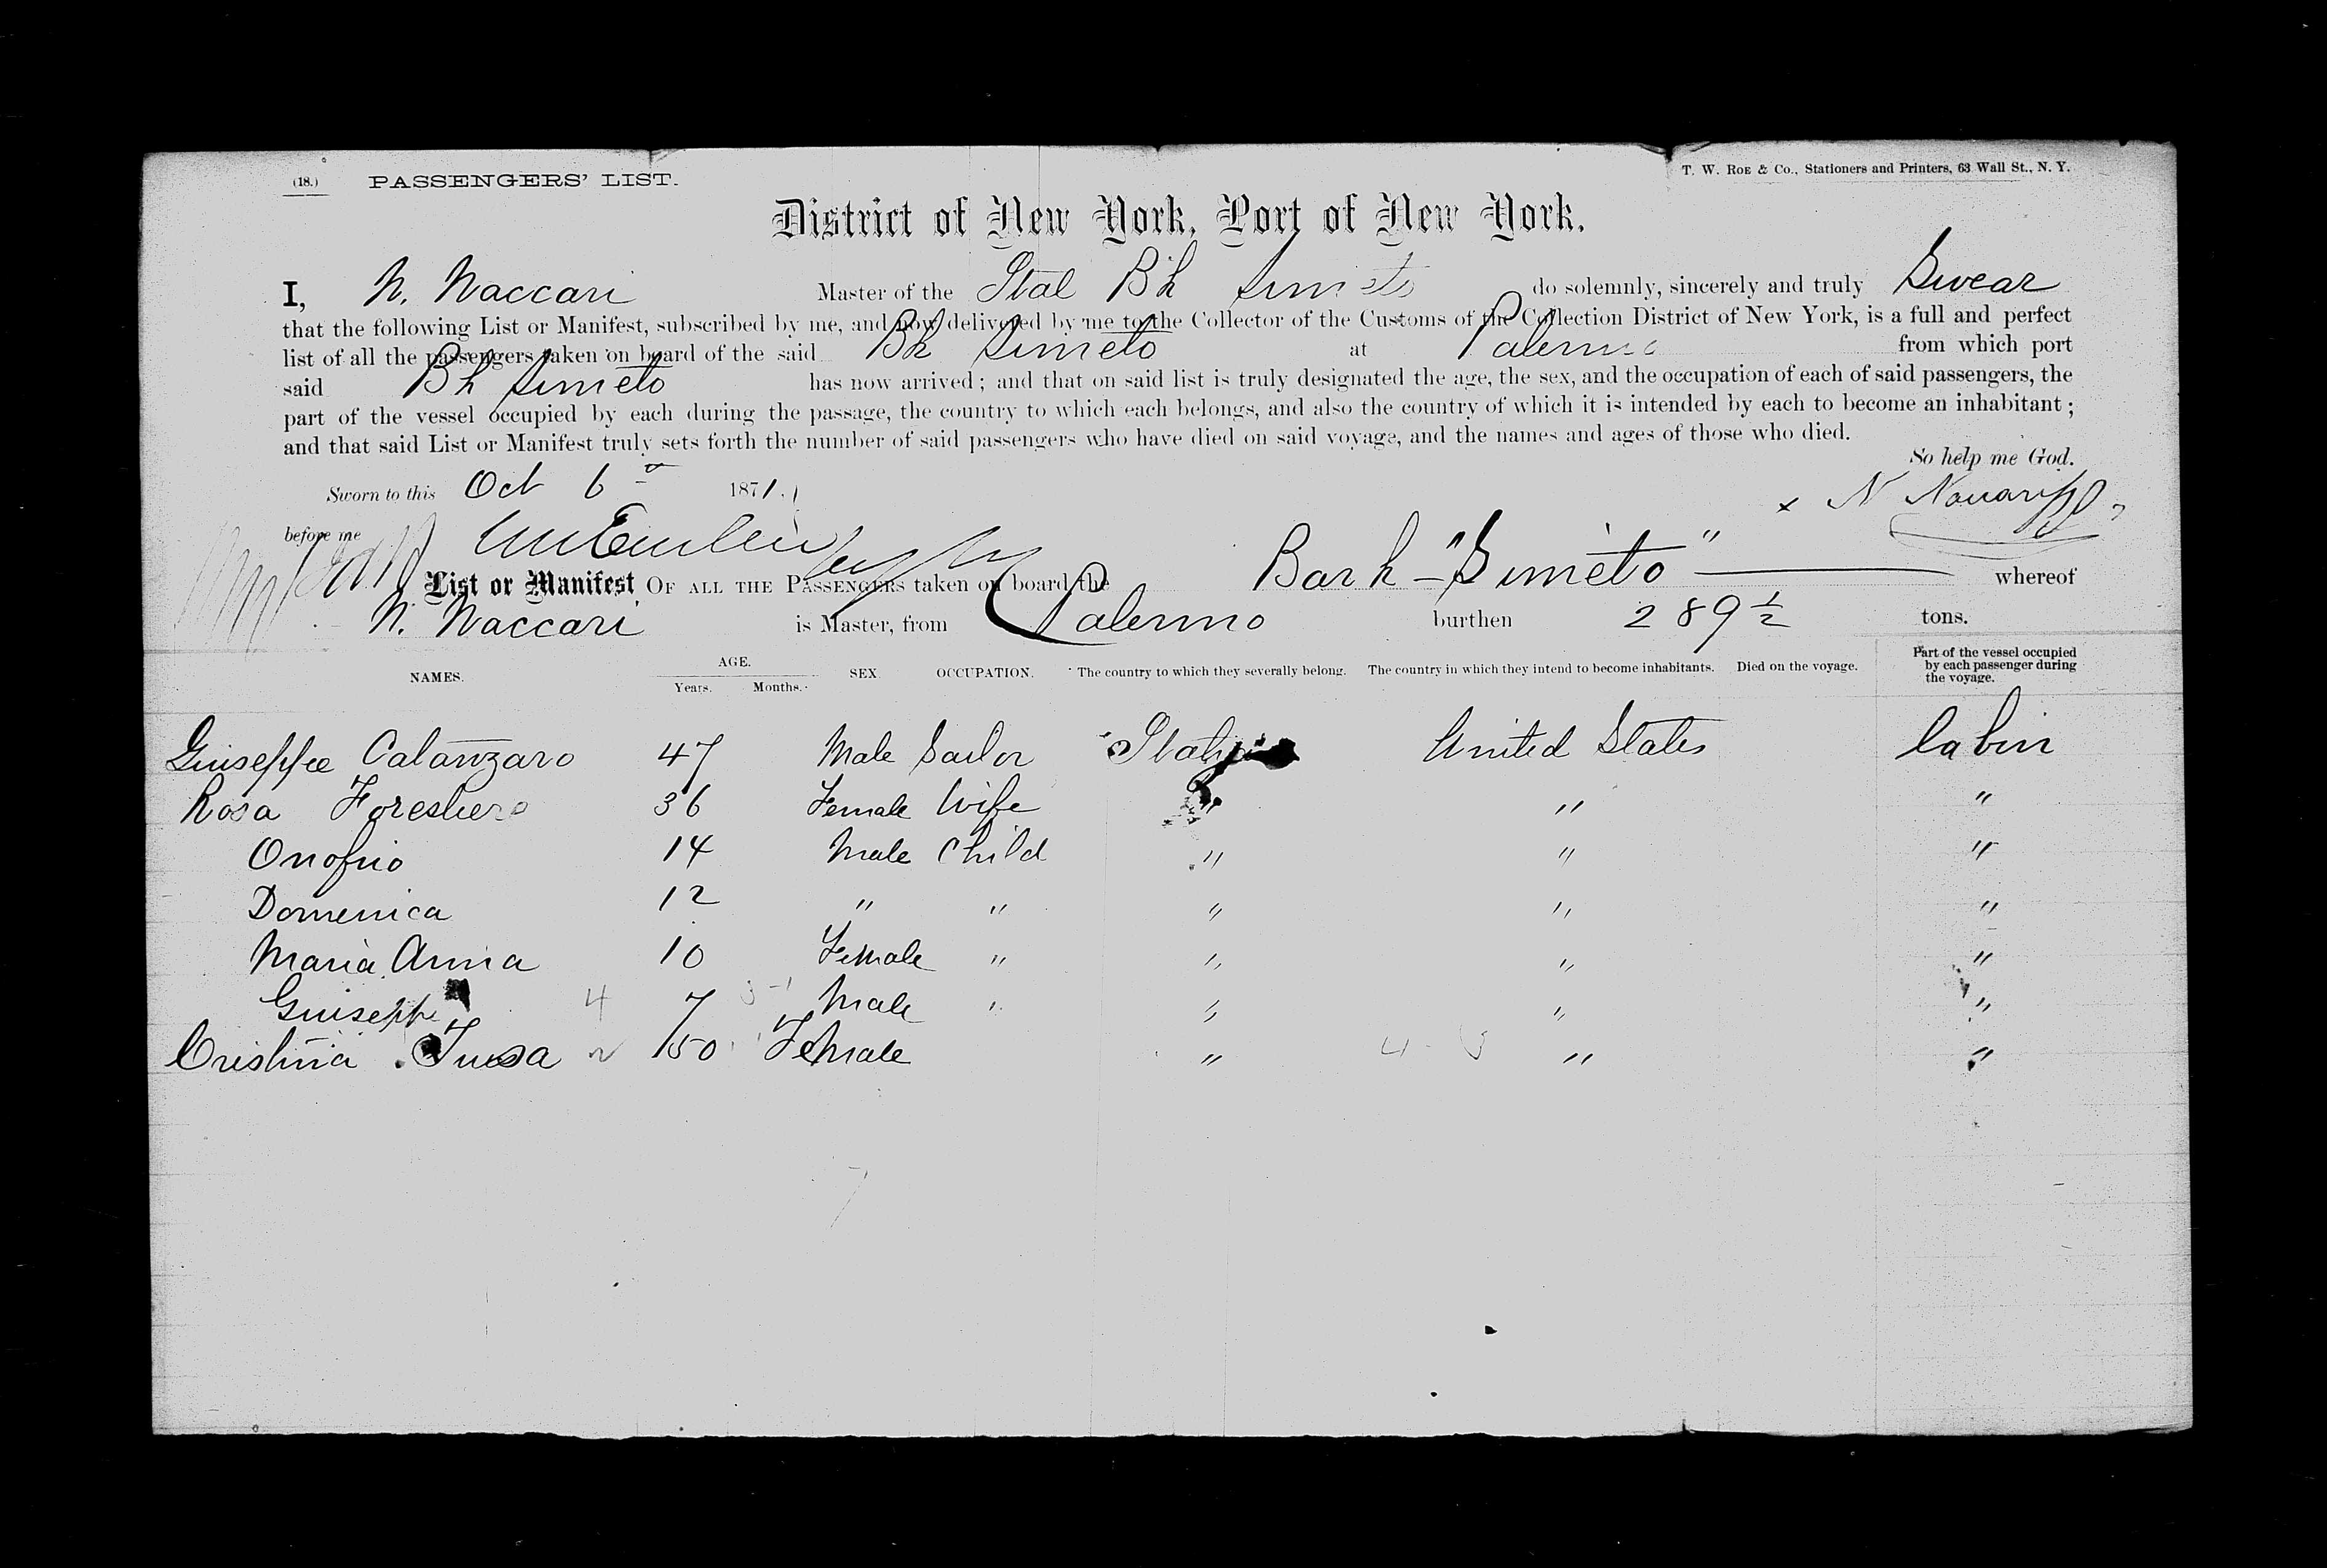 (18.) PASSENGERS' LIST.
T. W. Roe & Co., Stationers and Printers, 63 Wall St., N. Y.
District of New York, Port of New York.
I, N. Naccari Master of the Ital Bk Simeto do solemnly, sincerely and truly Swear
that the following List or Manifest, subscribed by me, and now delivered by me to the Collector of the Customs of the Collection District of New York, is a full and perfect
list of all the passengers taken on board of the said Bk Simeto at Palermo from which port
said Bk Simeto has now arrived; and that on said list is truly designated the age, the sex, and the occupation of each of said passengers, the
part of the vessel occupied by each during the passage, the country to which each belongs, and also the country of which it is intended by each to become an inhabitant;
and that said List or Manifest truly sets forth the number of said passengers who have died on said voyage, and the names and ages of those who died.
So help me God.
Sworn to this Oct 6 1871.
x N
before me
List or Manifest OF ALL THE PASSENGERS taken on board the Bark - "Simeto" whereof
N. Naccari is Master, from Palermo burthen 289 1/2 tons.
NAMES. AGE. Years. Months. SEX. OCCUPATION. The country to which they severally belong. The country in which they intend to become inhabitants. Died on the voyage. Part of the vessel occupied by each passenger during the voyage.
Giuseppe Catanzaro 47 Male Sailor Italy United States Cabin
Rosa Forestiere 36 Female Wife " " "
Onofrio 14 Male Child " " "
Domenica 12 " " " " "
Maria Anna 10 Female " " " "
Giuseppe 4 7 Male " " " "
Cristina Tusa 50 Female " " "